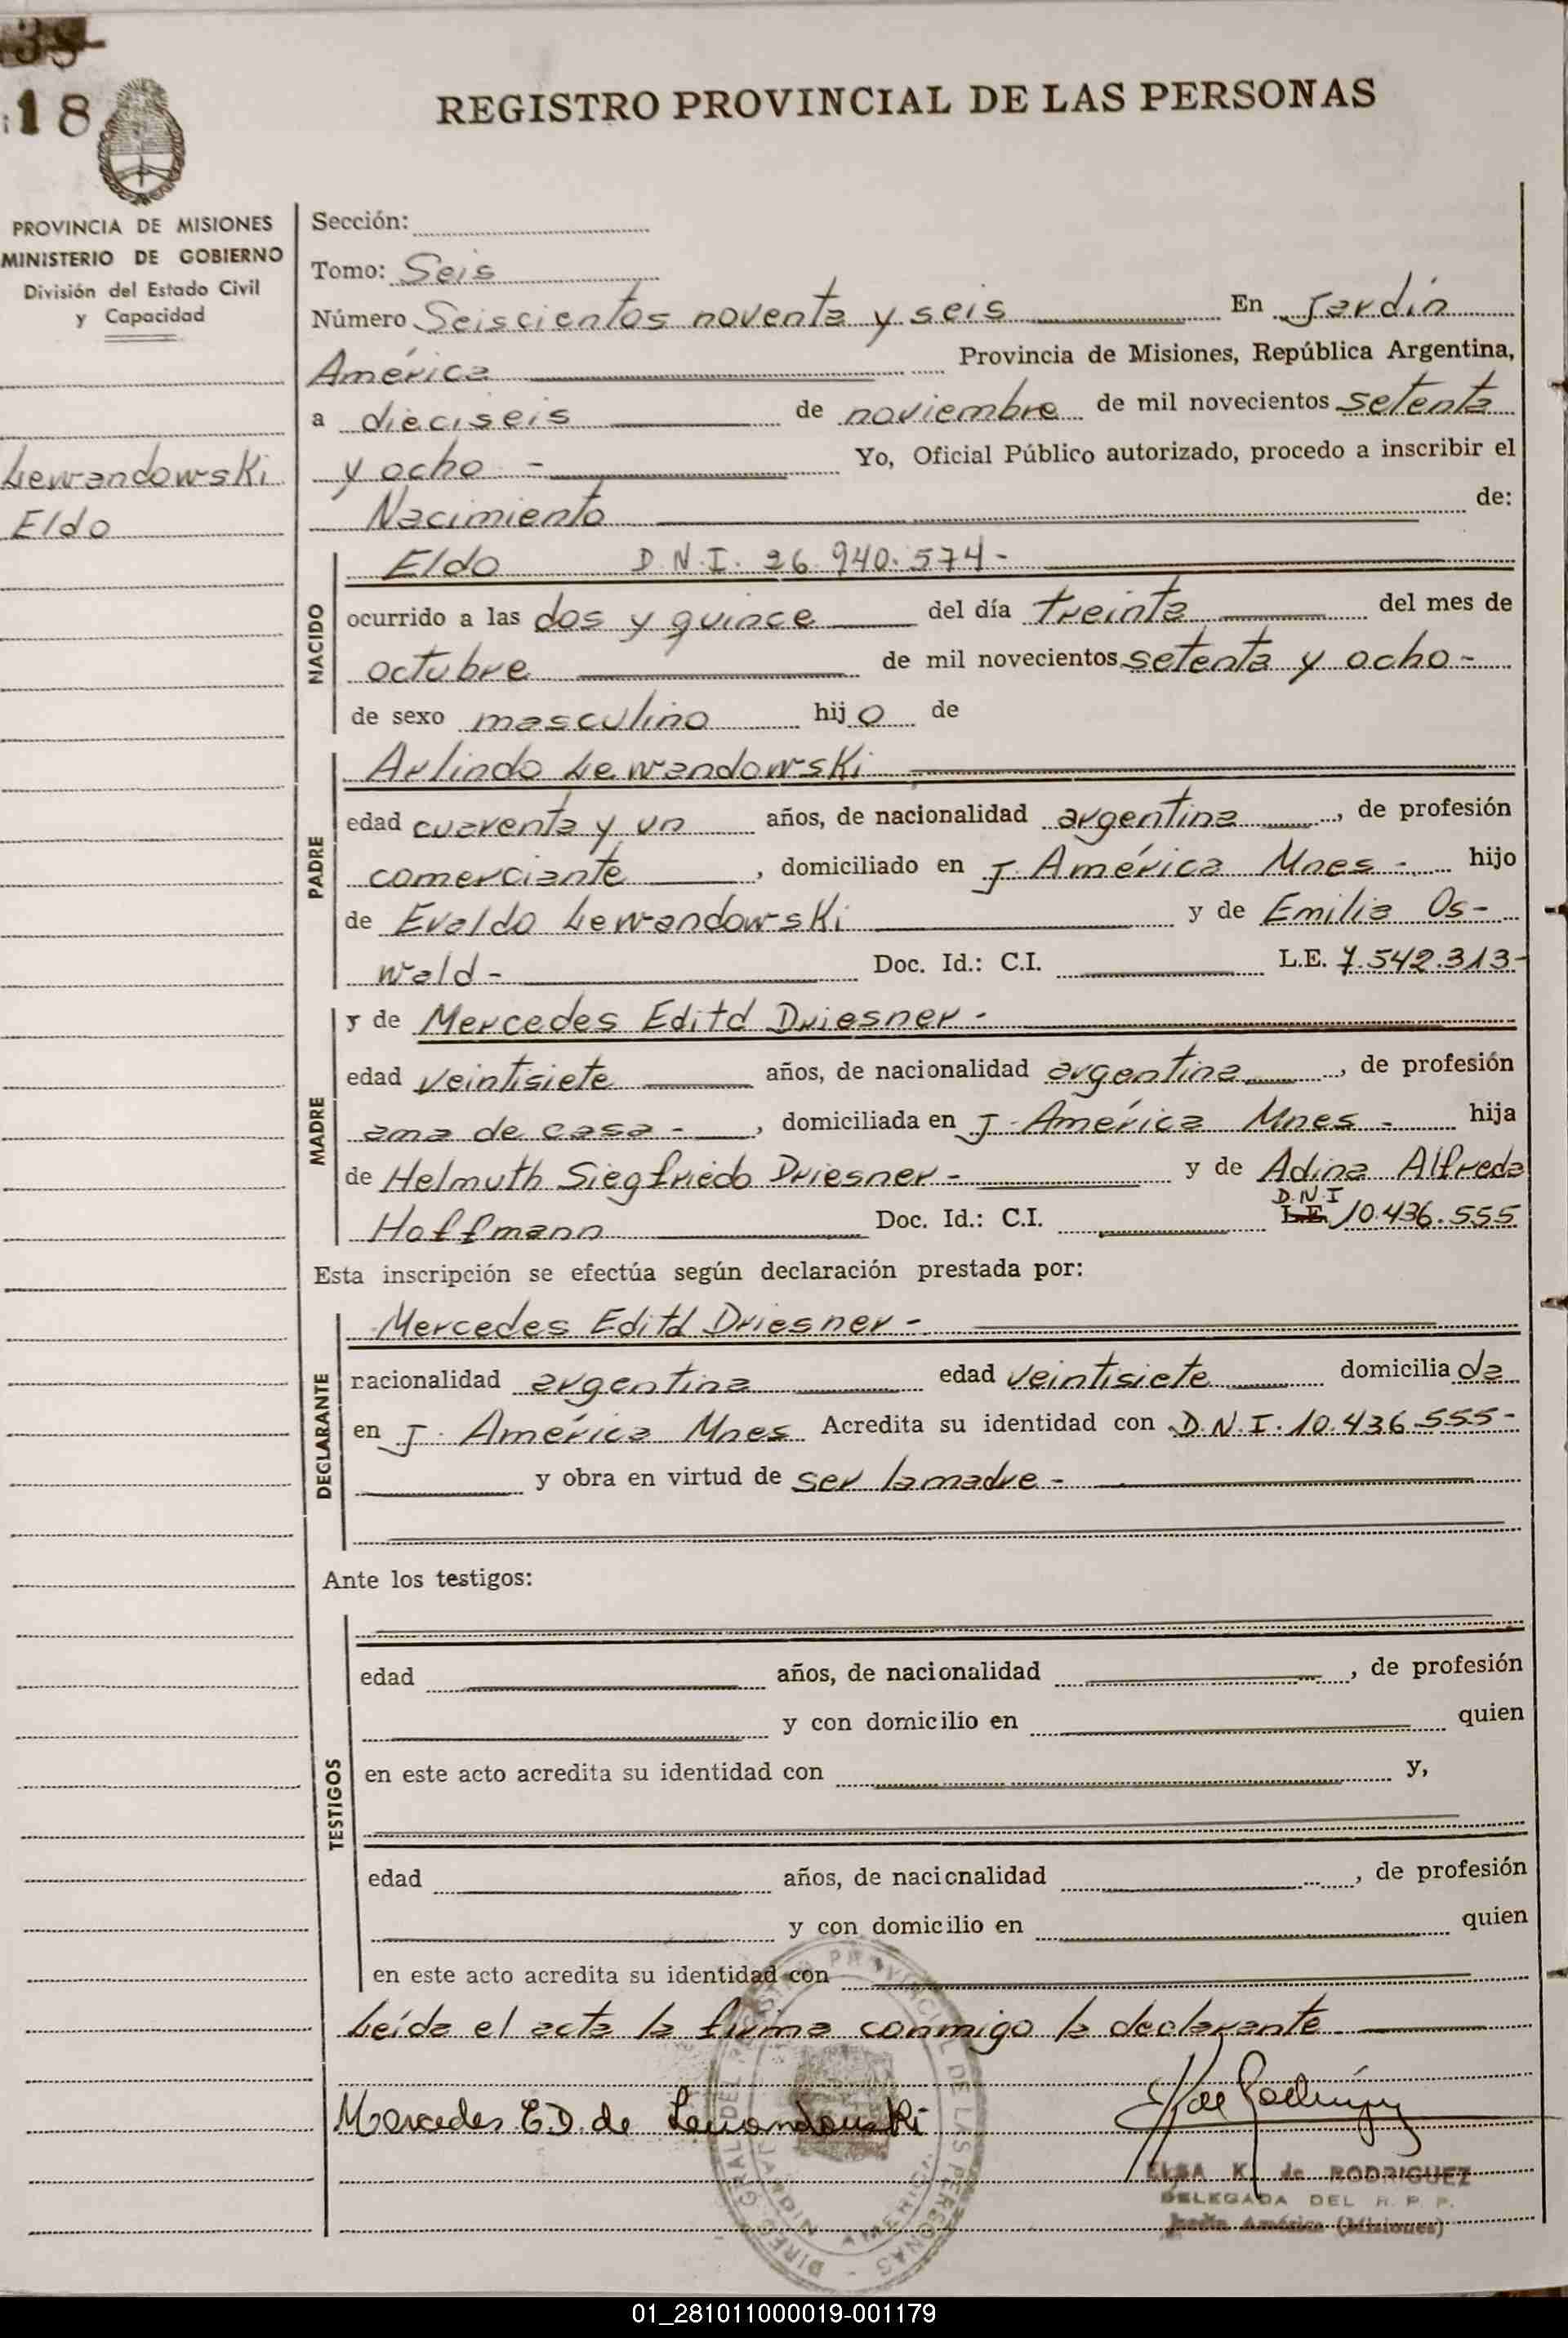 18
REGISTRO PROVINCIAL DE LAS PERSONAS
PROVINCIA DE MISIONES
MINISTERIO DE GOBIERNO
División del Estado Civil
y Capacidad
Lewandowski
Eldo
Sección:
Tomo: Seis
Número Seiscientos noventa y seis En Jardín
América Provincia de Misiones, República Argentina,
a dieciseis de noviembre de mil novecientos setenta
y ocho - Yo, Oficial Público autorizado, procedo a inscribir el
Nacimiento de:
NACIDO
Eldo D.N.I. 26.940.574-
ocurrido a las dos y quince del día treinta del mes de
octubre de mil novecientos setenta y ocho-
de sexo masculino hijo de
PADRE
Arlindo Lewandowski
edad cuarenta y un años, de nacionalidad argentina, de profesión
comerciante, domiciliado en J. América Mnes - hijo
de Evaldo Lewandowski y de Emilia Os-
wald- Doc. Id.: C.I. L.E. 7.542.313-
MADRE
y de Mercedes Editd Driesner-
edad veintisiete años, de nacionalidad argentina, de profesión
ama de casa-, domiciliada en J. América Mnes - hija
de Helmuth Siegfriedo Driesner- y de Adina Alfreda
Hoffmann Doc. Id.: C.I. L.E. D.N.I 10.436.555
Esta inscripción se efectúa según declaración prestada por:
DECLARANTE
Mercedes Editd Driesner-
nacionalidad argentina edad veintisiete domiciliada
en J. América Mnes Acredita su identidad con D.N.I. 10.436.555-
y obra en virtud de ser la madre-
Ante los testigos:
TESTIGOS
edad años, de nacionalidad , de profesión
y con domicilio en quien
en este acto acredita su identidad con y,
edad años, de nacionalidad , de profesión
y con domicilio en quien
en este acto acredita su identidad con
Leída el acta la firma conmigo la declarante
Mercedes E.D. de Lewandowski
ELSA K. de RODRIGUEZ
DELEGADA DEL R. P. P.
Jardín América (Misiones)
DIREC. GRAL DEL REGISTRO PROVINCIAL DE LAS PERSONAS
JARDIN AMERICA
01_281011000019-001179